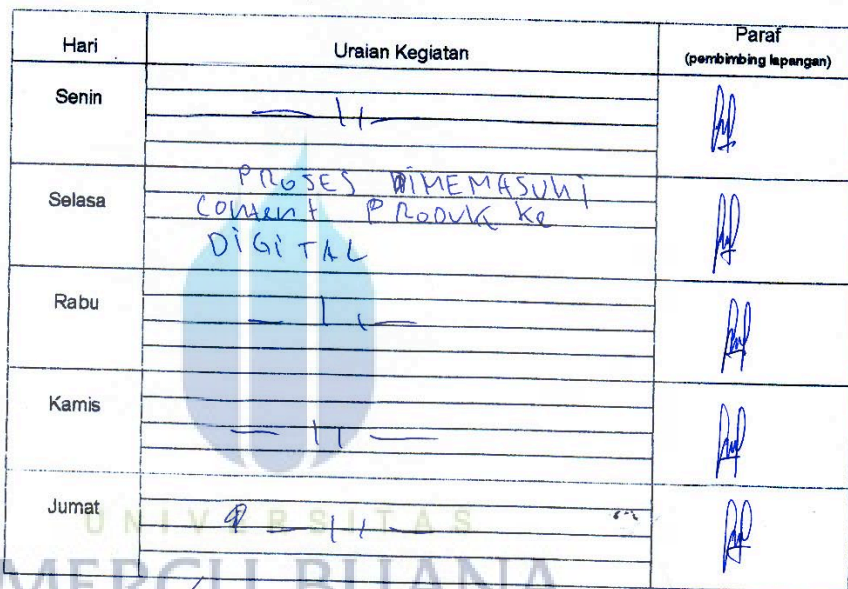 Hari Uraian Kegiatan Paraf
(pembimbing lapangan)
Senin — 11 —
Selasa PROSES DIMEMASUKI
Content PRODUK Ke
DIGITAL
Rabu — 11 —
Kamis — 11 —
Jumat — 11 —
UNIVERSITAS
MERCU BUANA